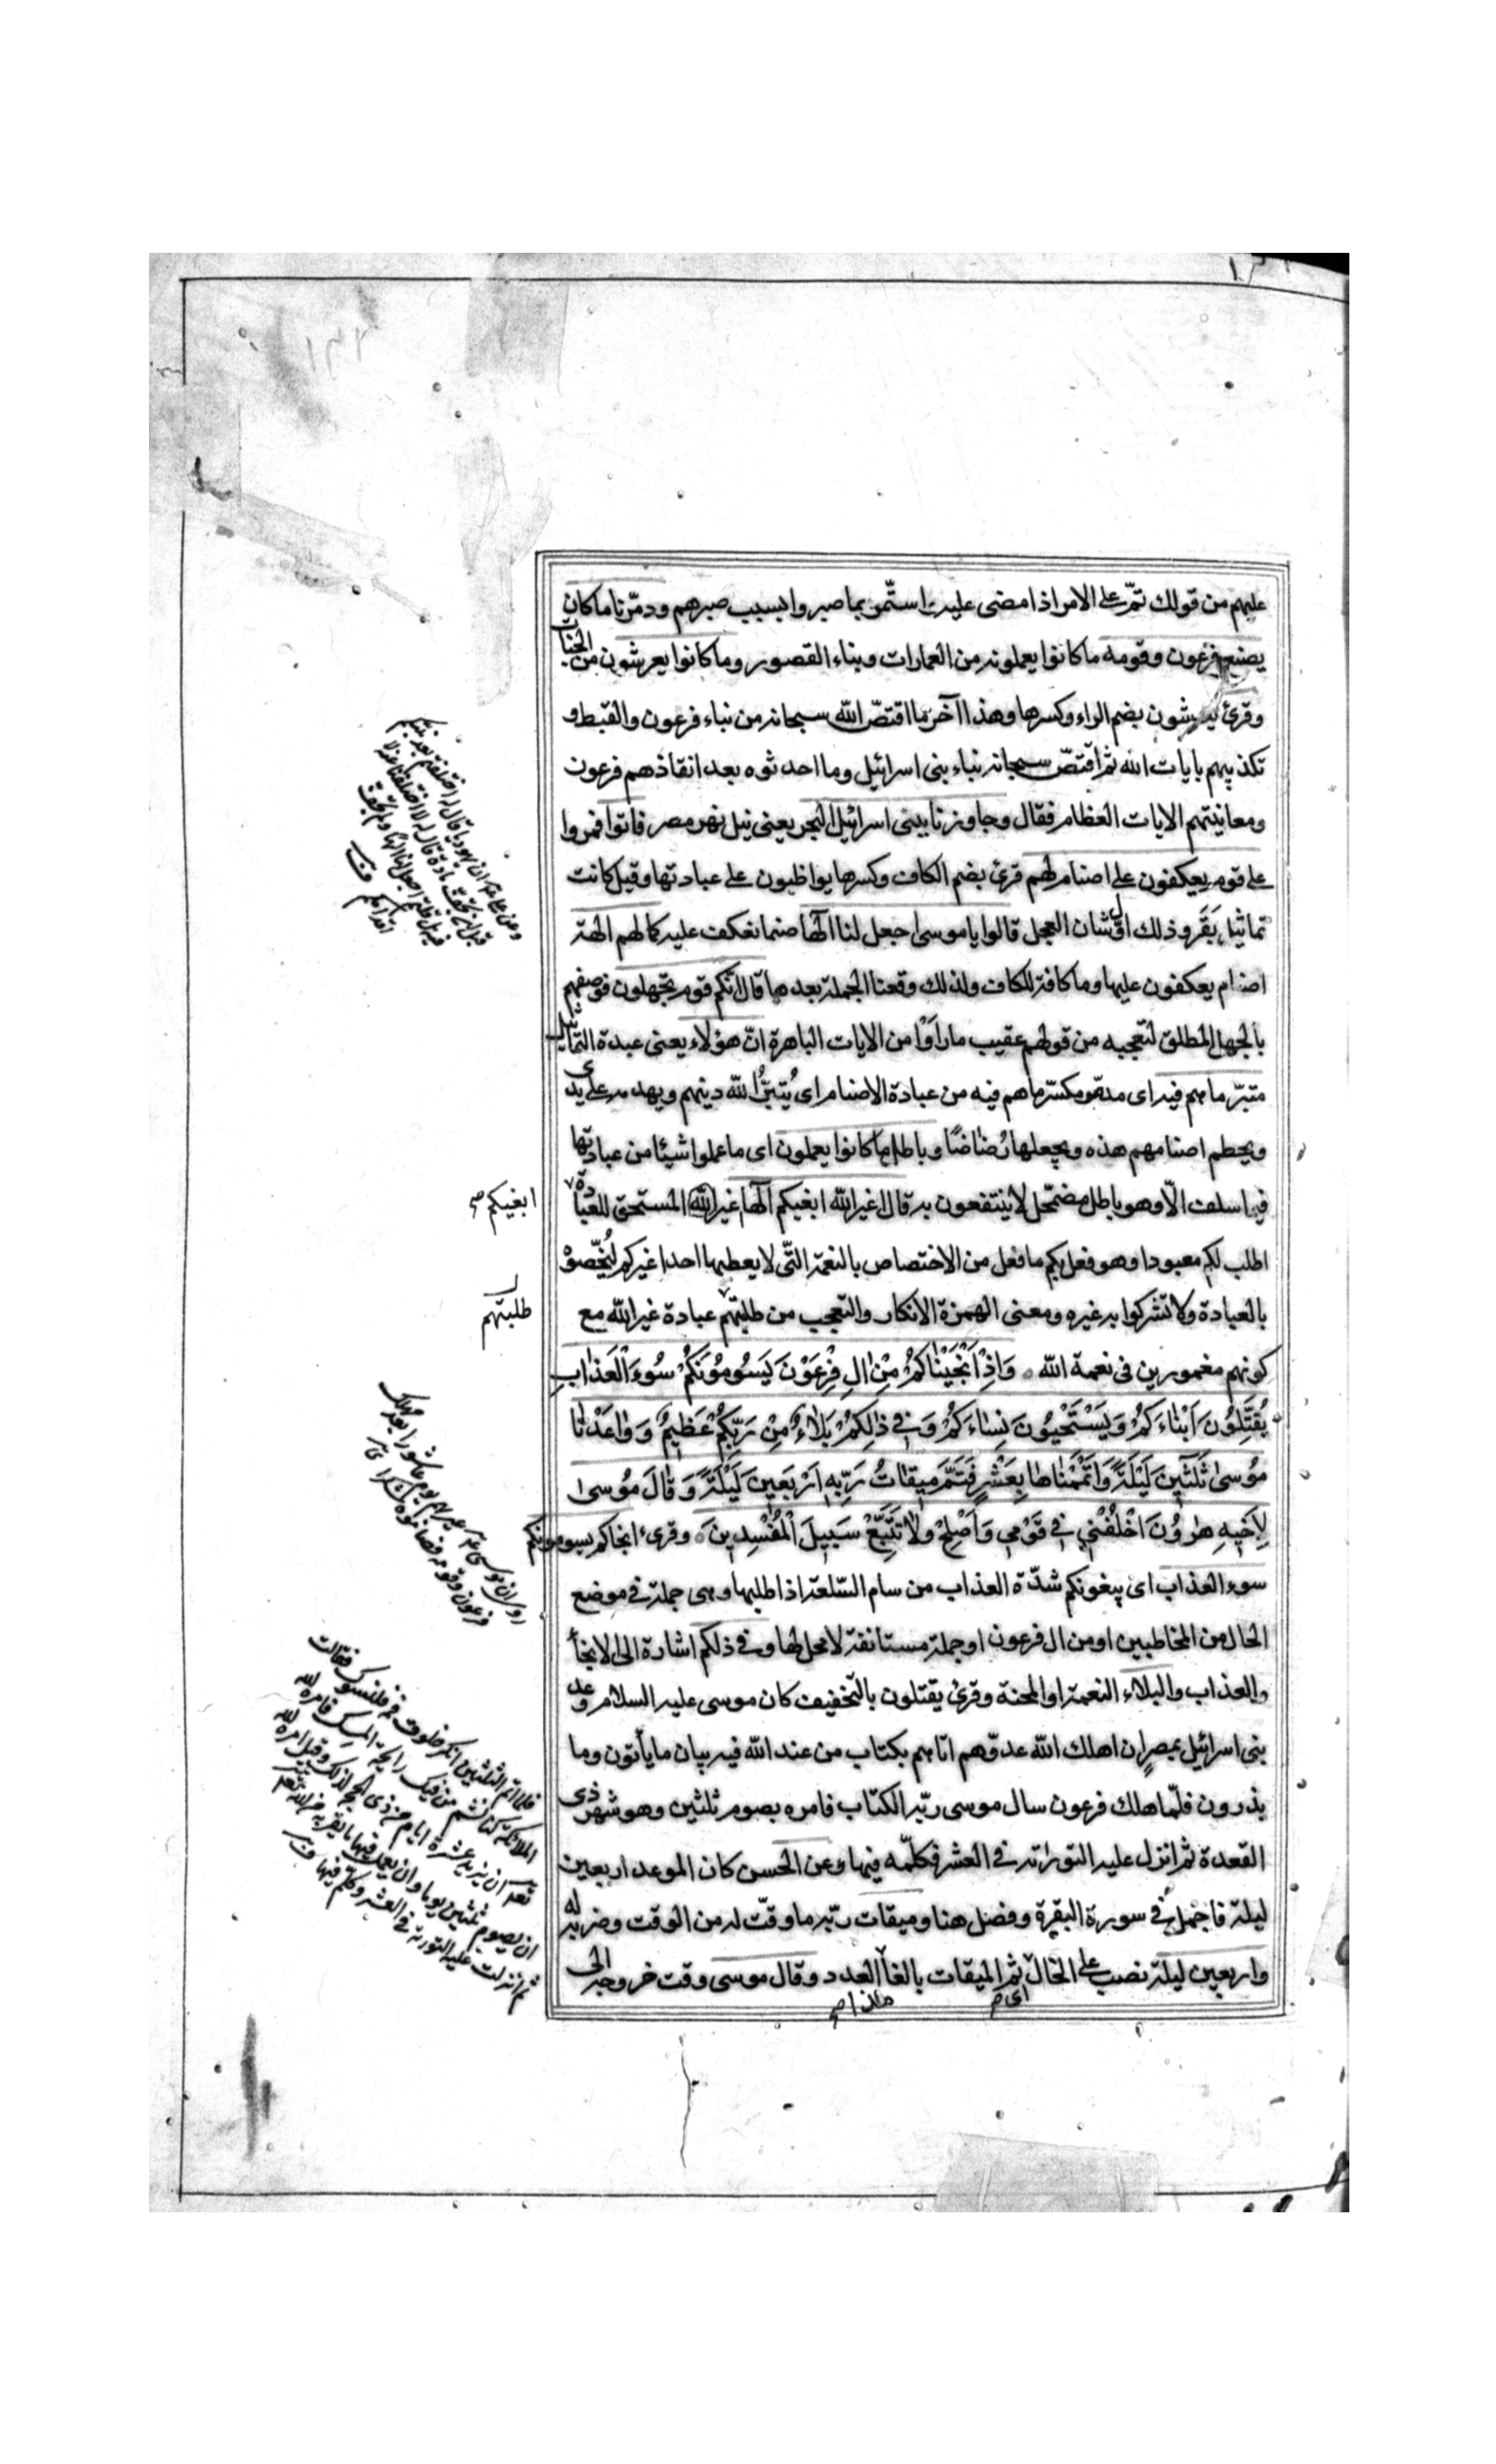 عليهم من قولك تمّ على الامر اذا مضى عليه واستمّر بما صبروا بسبب صبرهم ودمّرنا ما كان
يصنع فرعون وقومه ما كانوا يعملونه من العمارات وبناء القصور وما كانوا يعرشون من الجنات
وقرئ يعرشون بضم الراء وكسرها وهذا آخر ما اقتصّ الله سبحانه من نباء فرعون والقبط و
تكذيبهم بايات الله ثم اقتصّ سبحانه نباء بنى اسرائيل وما احدثوه بعد انقاذهم فرعون
ومعاينتهم الايات العظام فقال وجاوزنا ببنى اسرائيل البحر يعنى نيل نهر مصر فاتوا فمروا
على قوم يعكفون على اصنام لهم قرئ بضم الكاف وكسرها يواظبون على عبادتها وقيل كانت
تماثيل بَقَر وذلك اوّل شان العجل قالوا يا موسى اجعل لنا الٓها صنما نعكف عليه كما لهم الهة
اصنام يعكفون عليها وما كافة للكاف ولذلك وقعنا الجملة بعدها قال انّكم قوم تجهلون فوصفهم
بالجهل المطلق لتعجبه من قولهم عقيب ما رأوْا من الايات الباهرة انّ هؤلاء يعنى عبدة التماثيل
متبّر ما هم فيه اى مدمّر مكسّر ما هم فيه من عبادة الاصنام اى يُتبّرُ الله دينهم ويهدمه على يدى
ويحطم اصنامهم هذه ويجعلها رُضاضًا وباطل ما كانوا يعملون اى ما عملوا شيئا من عبادتها
فيما سلف الّا وهو باطل مضمحّل لا ينتفعون به قال اغير الله ابغيكم الٓها اغير الله المستحق للعبادة
اطلب لكم معبودا وهو فعل بكم ما فعل من الاختصاص بالنعمة التّى لا يعطيها احدا غيركم لتُخصّوهْ
بالعبادة ولا تشركوا به غيره ومعنى الهمزة الانكار والتعجب من طلبتهم عبادة غير الله مع
كونهم مغمورين فى نعمة الله وَاِذْ اَنْجَيْنٰاكُمْ مِنْ اٰلِ فِرْعَوْنَ يَسُومُونَكُمْ سُوءَ الْعَذٰابِ
يُقَتِّلُونَ اَبْنٰاءَكُمْ وَيَسْتَحْيُونَ نِسٰاءَكُمْ وَفِى ذٰلِكُمْ بَلٰاءٌ مِنْ رَبِّكُمْ عَظِيمٌ وَوٰاعَدْنٰا
مُوسىٰ ثَلٰثِينَ لَيْلَةً وَاَتْمَمْنٰاهٰا بِعَشْرٍ فَتَمَّ مِيقٰاتُ رَبِّهِ اَرْبَعِينَ لَيْلَةً وَقٰالَ مُوسىٰ
لِاَخِيهِ هٰرُونَ اخْلُفْنِى فِى قَوْمِى وَاَصْلِحْ وَلٰا تَتَّبِعْ سَبِيلَ الْمُفْسِدِينَ وقرىء انجاكم يسومونكم
سوء العذاب اى يبغونكم شدّة العذاب من سام السّلعة اذا طلبها وهى جملة فى موضع
الحال من المخاطبين او من ال فرعون او جملة مستانفة لا محل لها وفى ذلكم اشارة الى الانجأ
والعذاب والبلاء النعمة او المحنة وقرئ يقتلون بالتخفيف كان موسى عليه السلام وعد
بنى اسرائيل بمصر ان اهلك الله عدوّهم اتاهم بكتاب من عند الله فيه بيان ما يأتون وما
يذرون فلمّا هلك فرعون سال موسى ربّه الكتاب فامره بصوم ثلثين وهو شهر ذى
القعدة ثم انزل عليه التوراة فى العشر فكلّمه فيها وعن الحسن كان الموعد اربعين
ليلة فاجمل فى سورة البقرة وفصل هنا وميقات ربّه ما وقّت له من الوقت وضربه له
واربعين ليلة نصب على الحال ثم الميقات بالغا العدد وقال موسى وقت خروجه الى
اى
هذا
ابغيكم صح
طلبتهم
فلما اتم الثلثين انكر خلوف فمه فتسوك فقالت
الملائكة كنا نشم من فيك رايحة المسك فامره الله